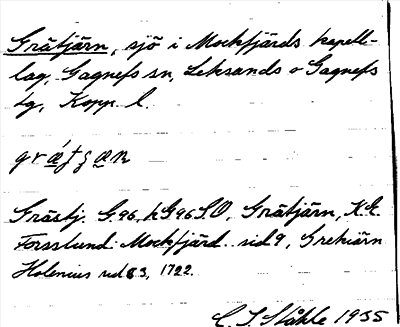 Gråtjärn, sjö i Mockfjärds kapell-
lag, Gagnefs sn, Leksands o Gagnefs
tg, Kopp. l.
Gråtj. G. 96, kG96SO, Gråtjärn, K.E.
Forsslund: Mockfjärd sid 9,
Holenius 1722.
C. I. Ståhle 1935